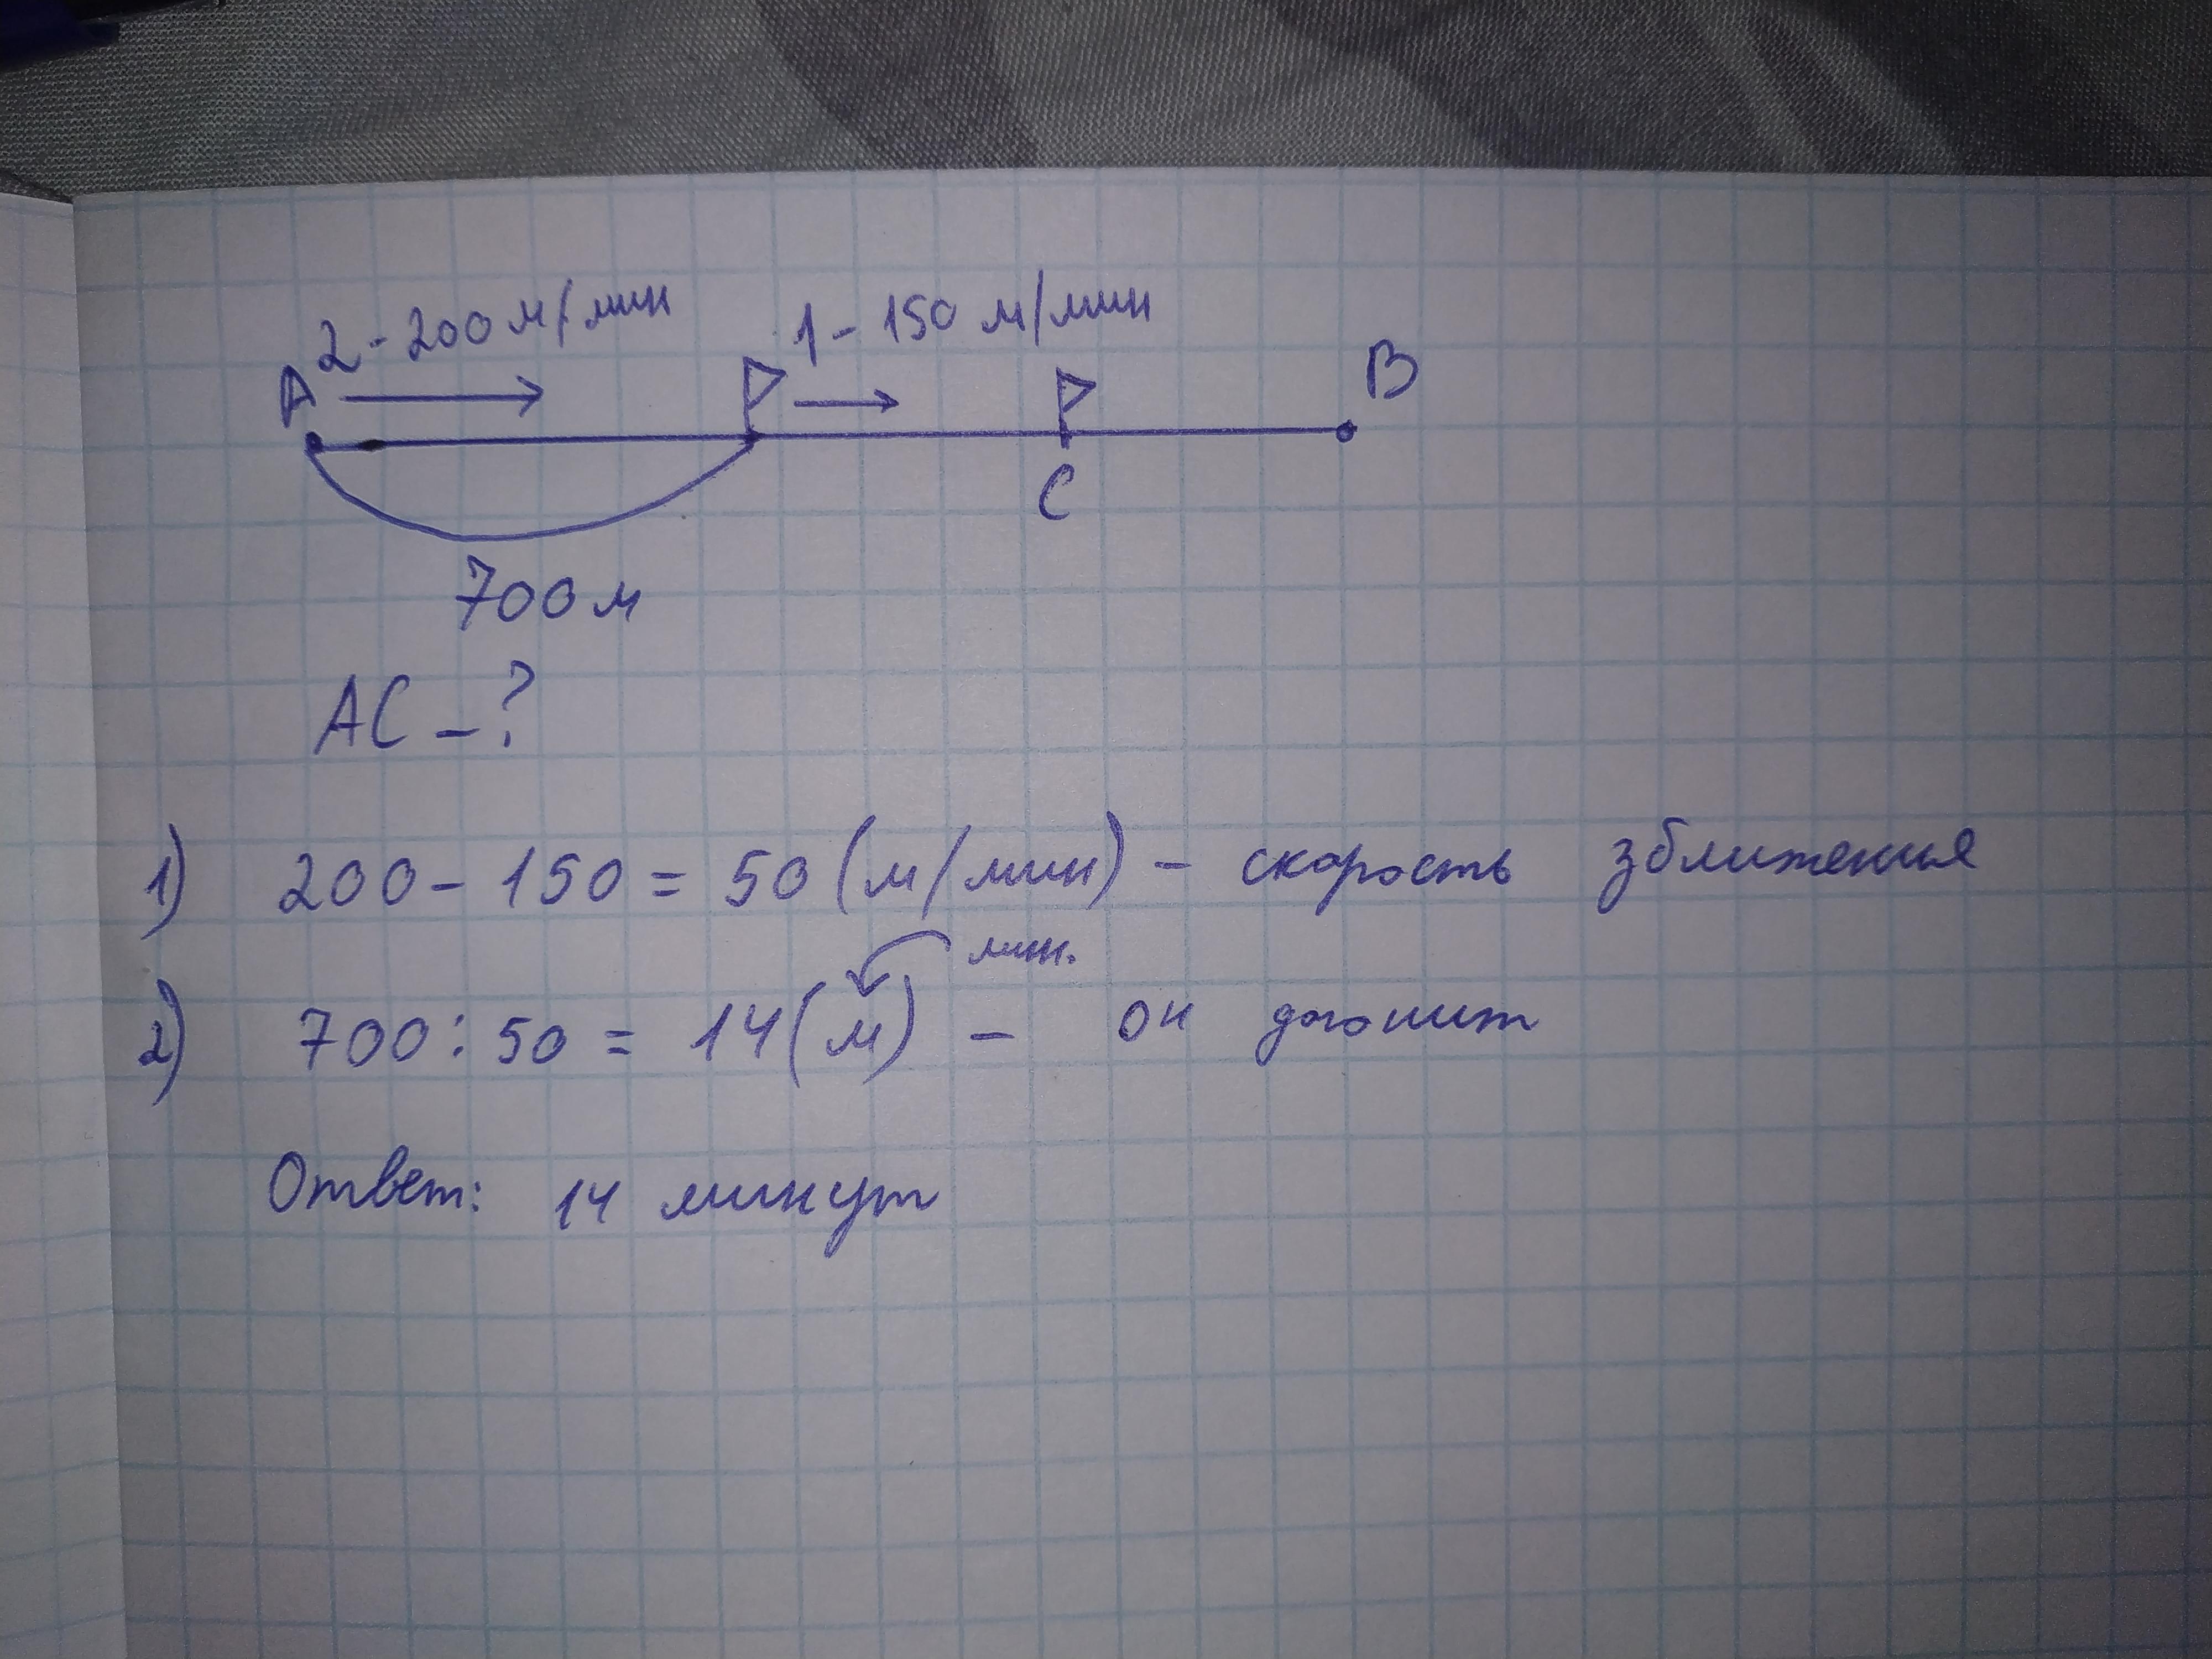 2 - 200 м/мин 1 - 150 м/мин
A B
C
700 м
AC - ?
1) 200 - 150 = 50 (м/мин) - скорость зближения
мин.
2) 700 : 50 = 14 (м) - он догонит
Ответ: 14 минут